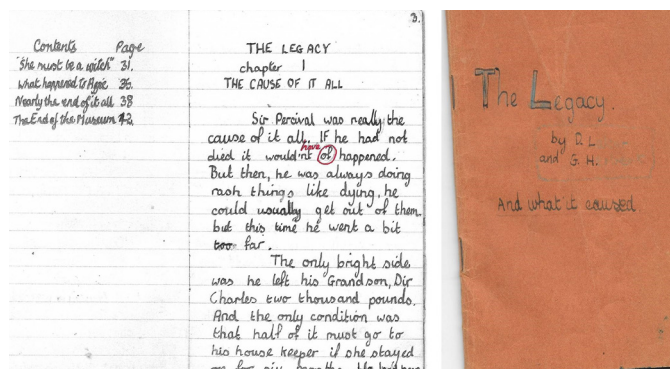 Contents Page
"She must be a witch" 31.
What happened to Aggie 36.
Nearly the end of it all 38
The End of the Museum 42.
3.
THE LEGACY
chapter 1
THE CAUSE OF IT ALL
Sir Percival was really the
cause of it all. IF he had not
have
died it would'nt of happened.
But then, he was always doing
rash things like dying, he
could usually get out of them
but this time he went a bit
too far.
The only bright side
was he left his Grandson, Sir
Charles two thousand pounds.
And the only condition was
that half of it must go to
his house keeper if she stayed
on for six months. He had
The Legacy.
by D. L
and G. H.
And what it caused